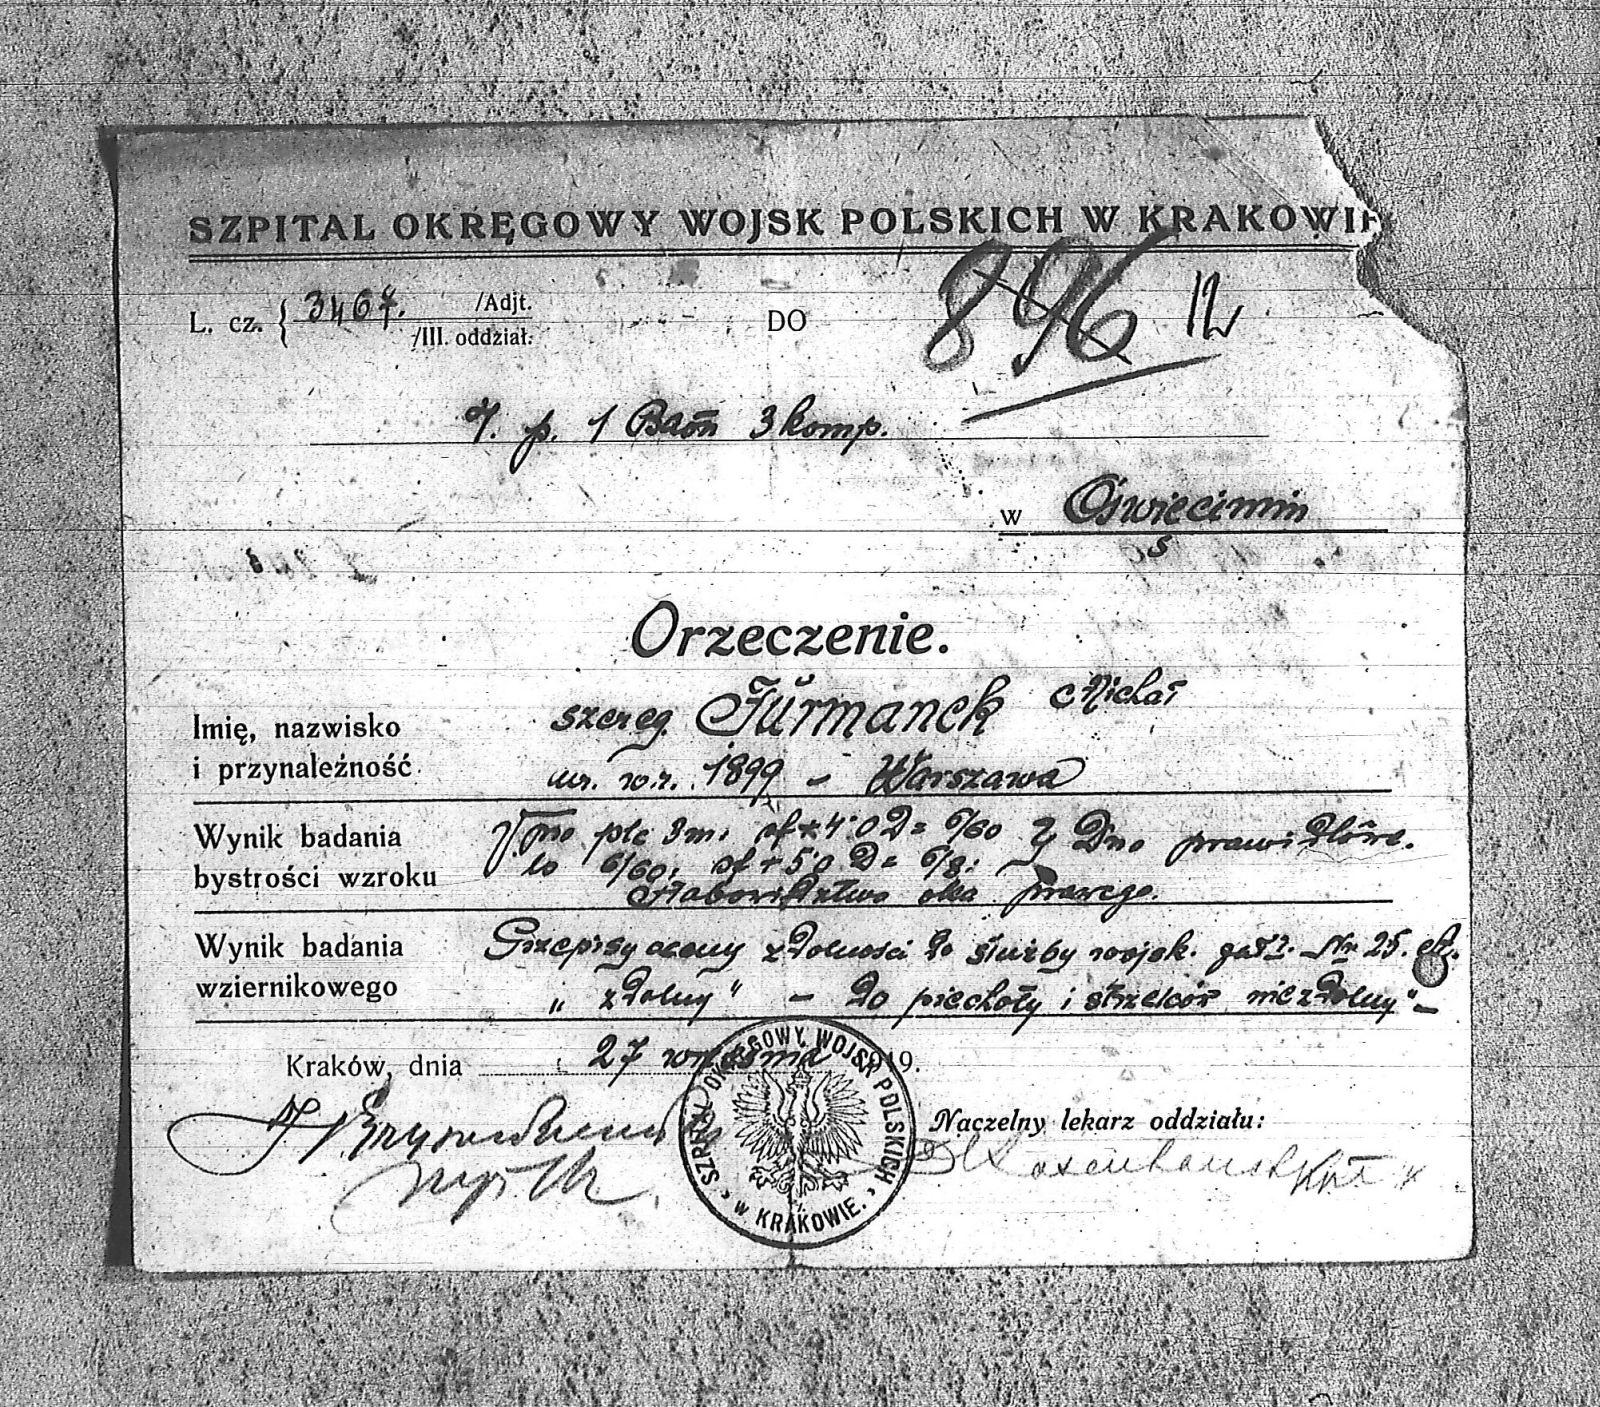 SZPITAL OKRĘGOWY WOJSK POLSKICH W KRAKOWIE
L. cz. { 3467. /Adjt. /III. oddział.
DO
896 12
4. p. 1 Baon 3 komp.
w Oświęcimin
s
Orzeczenie.
Imię, nazwisko i przynależność
szereg. Furmanek Michał
ur. w.r. 1899 – Warszawa
Wynik badania bystrości wzroku
V. pto plc 3m. sf + 4.0 D = 6/60 Dno prawidłowe.
lo 6/60, sf + 5.0 D = 6/8:
oka prawego.
Wynik badania wziernikowego
Przepisy oceny zdolności do służby wojsk. Nr 25.
„zdolny" – do piechoty i strzelców niezdolny" –
Kraków, dnia 27 września 919.
Naczelny lekarz oddziału:
SZPITAL OKRĘGOWY WOJSK POLSKICH w KRAKOWIE.